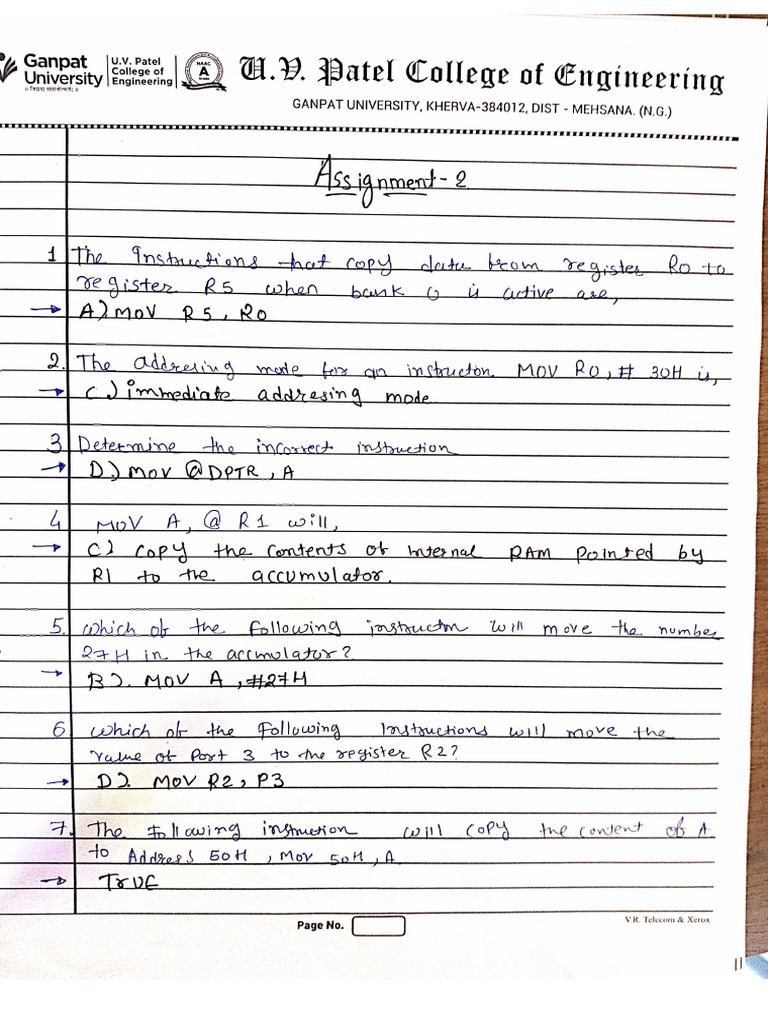 Ganpat
University
॥ विद्यया समाजोत्कर्षः ॥
U.V. Patel
College of
Engineering
NAAC
A
U.V. Patel College of Engineering
GANPAT UNIVERSITY, KHERVA-384012, DIST - MEHSANA. (N.G.)
Assignment - 2
1 The Instructions that copy data from register R0 to
register R5 when bank 0 is active are,
→ A) MOV R5, R0
2. The addresing mode for an instructon MOV R0, # 30H is,
→ C.) immediate addresing mode
3 Determine the incorrect instruction
→ D.) MOV @DPTR, A
4 MOV A, @ R1 will,
→ C) Copy the contents of internal RAM pointed by
R1 to the accumulator.
5. Which of the following instructon will move the number
27H in the accmulator?
→ B). MOV A, #27H
6 Which of the Following Instructions will move the
value of Port 3 to the register R2?
→ D). MOV R2, P3
7. The Following instruction will copy the content of A
to Address 50H, Mov 50H, A
→ TRUE
Page No.
V.R. Telecom & Xerox